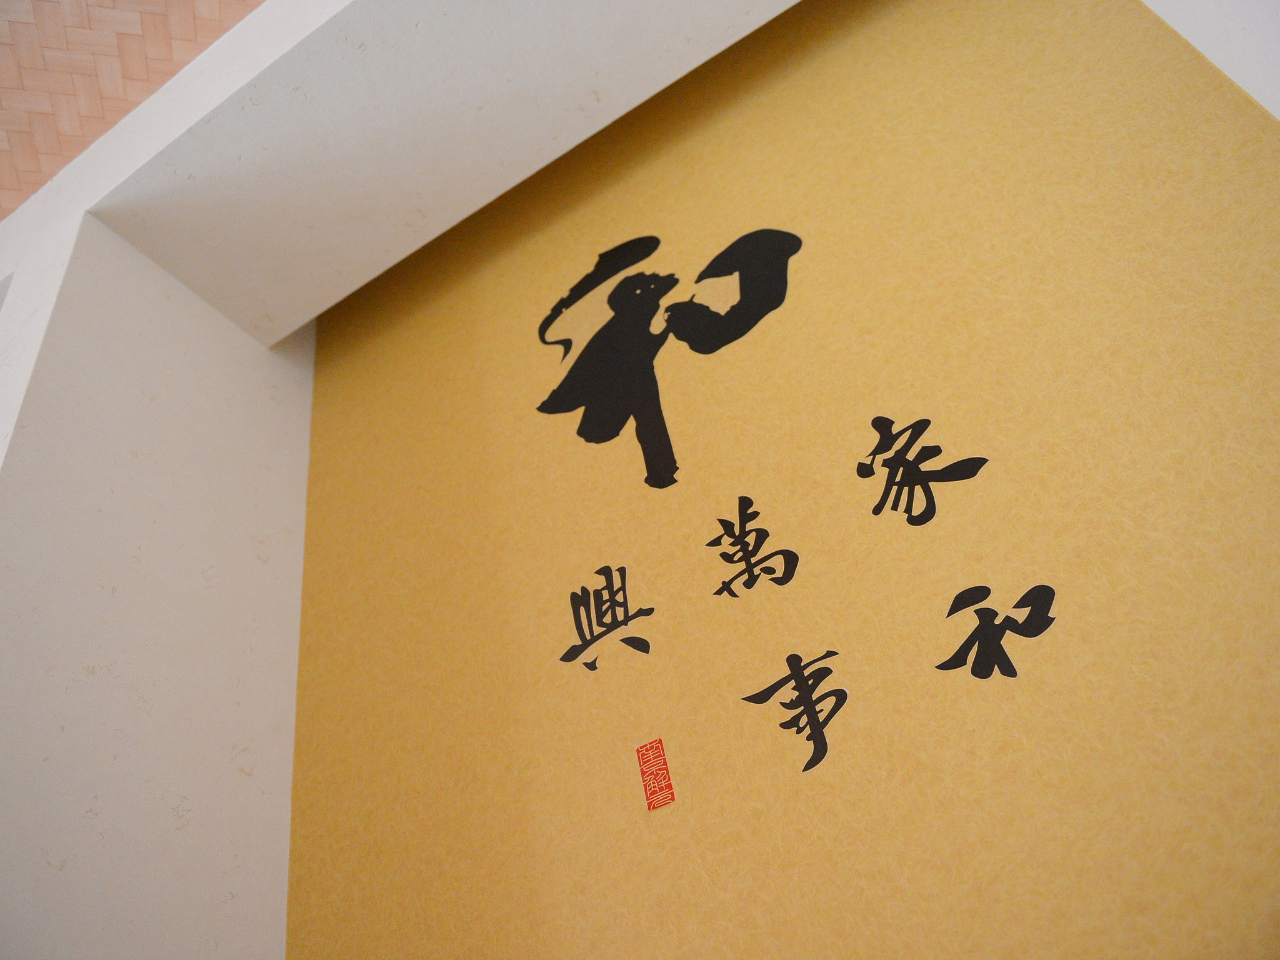 和
家和
萬事
興